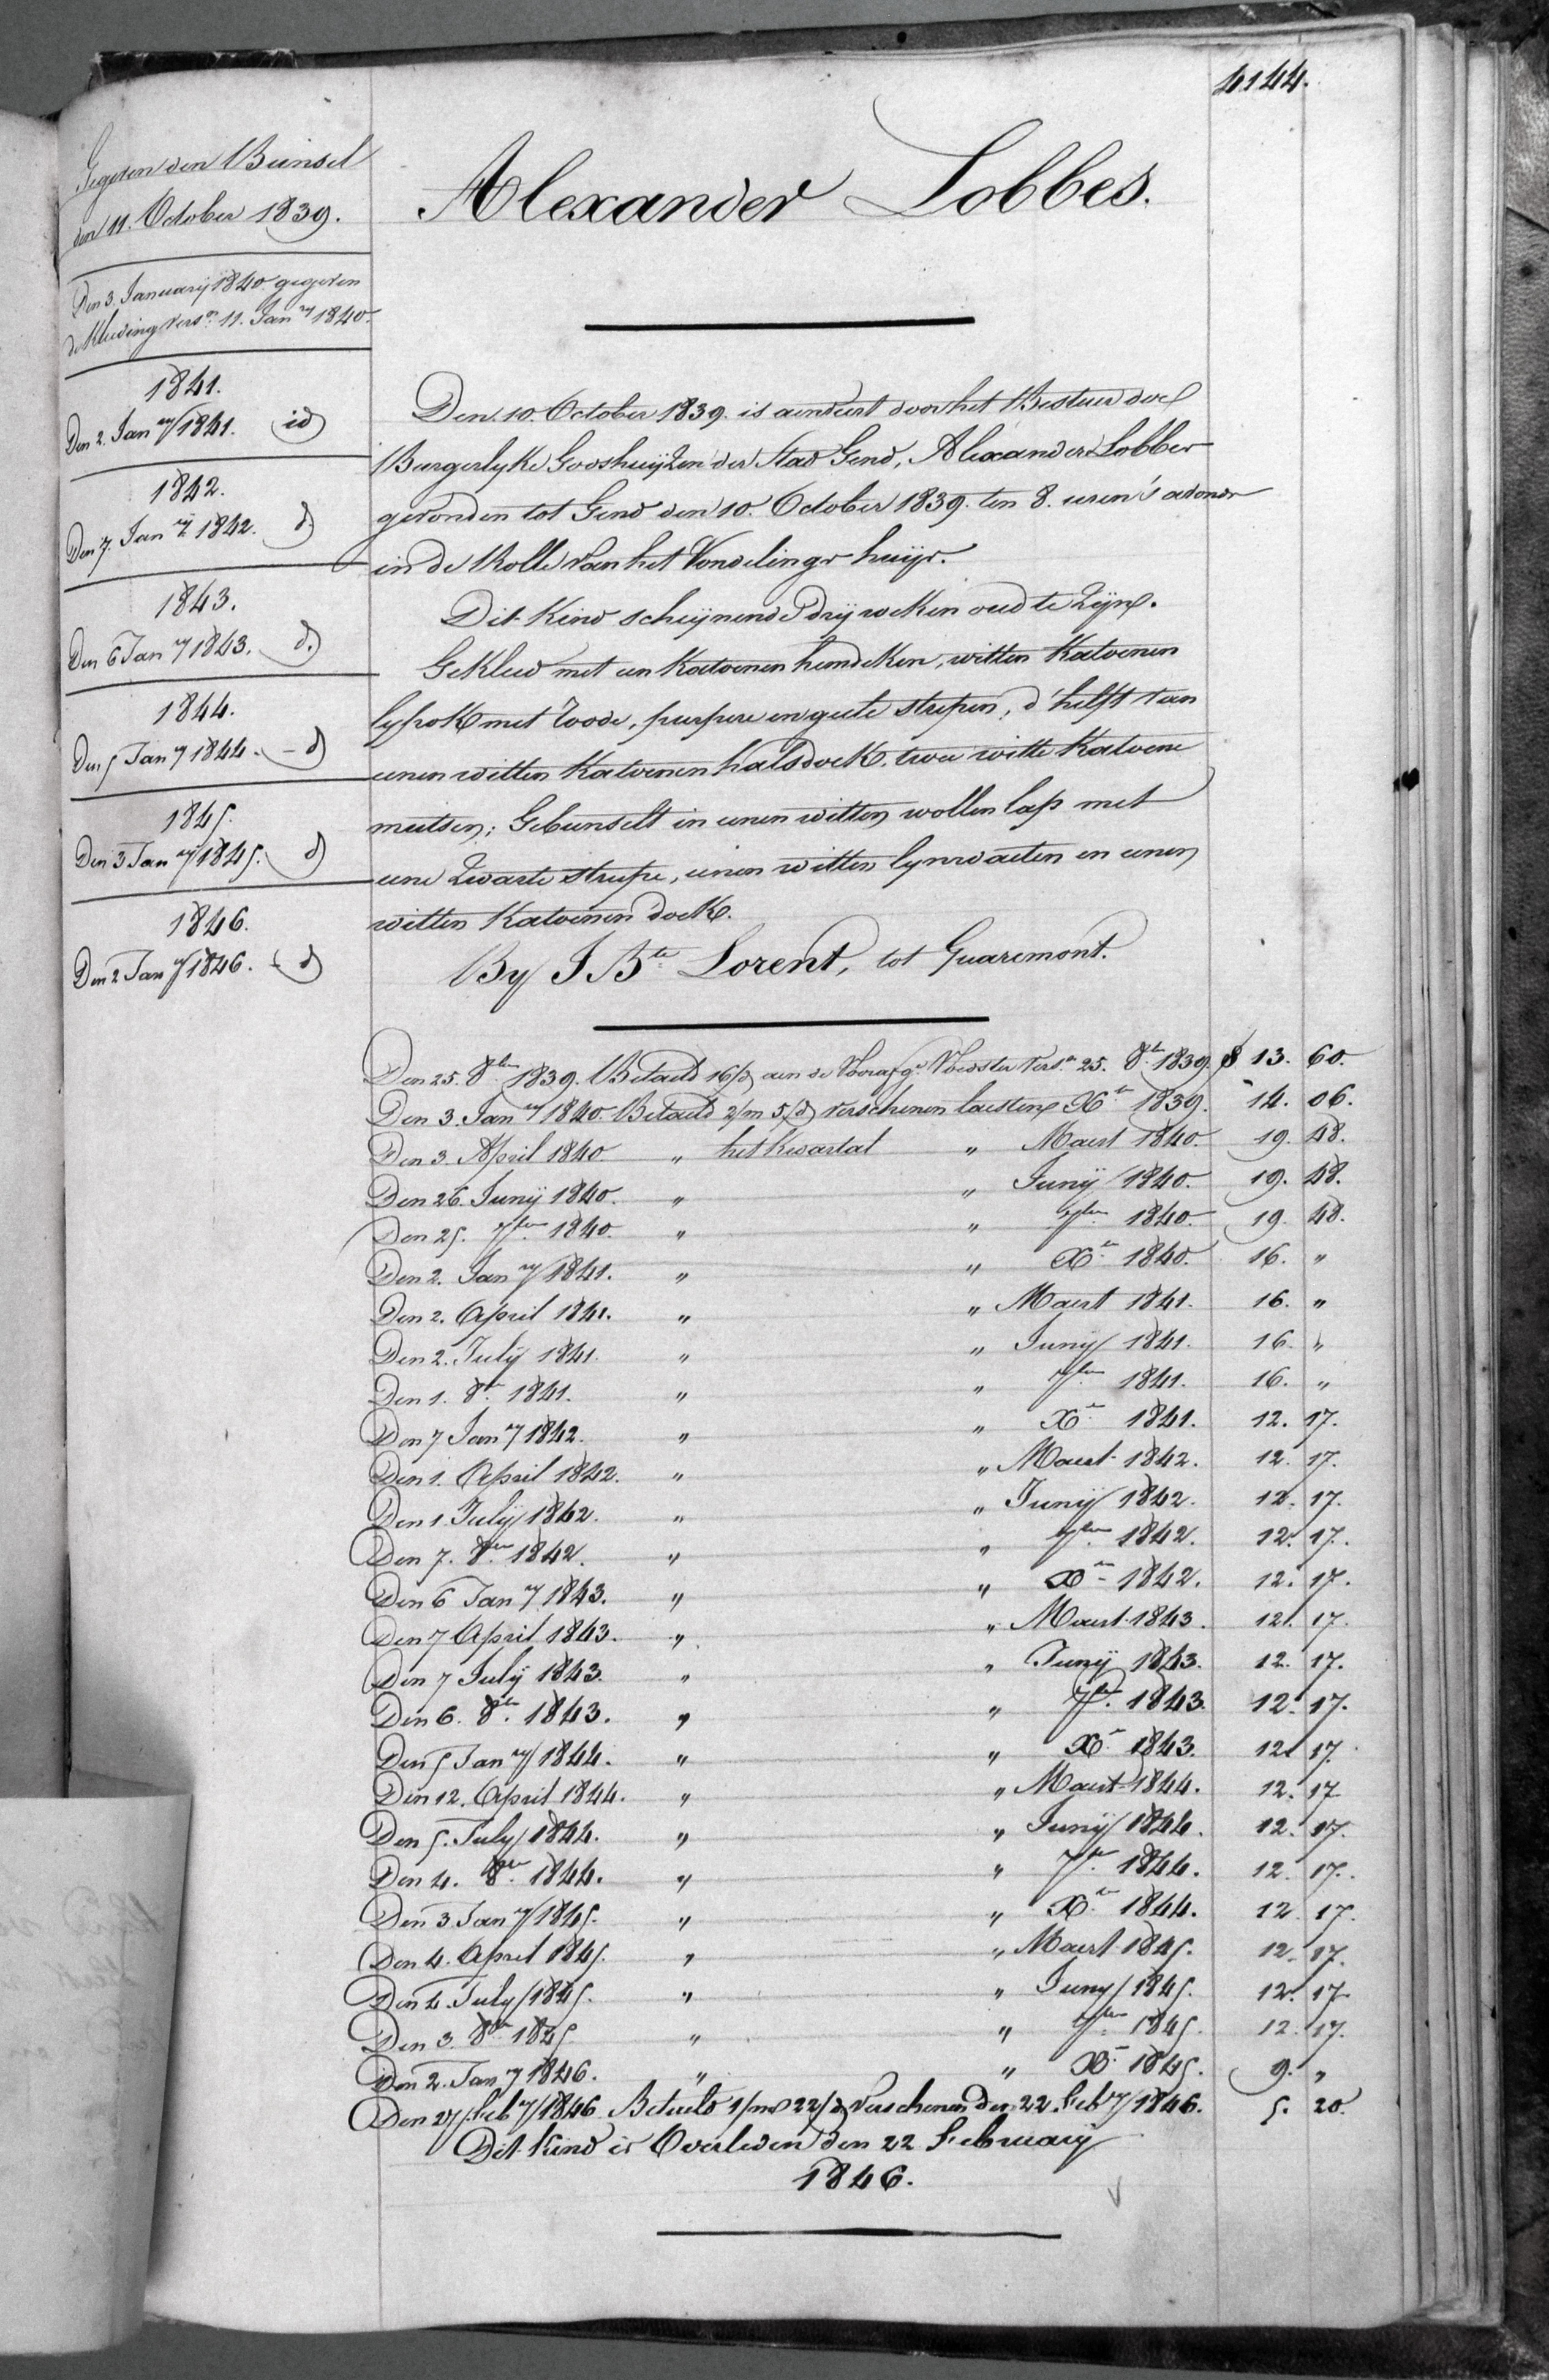 4144.
Gegeven den Bunsel
den 11. October 1839.
Den 3. Januarij 1840 gegeven
de Kleeding vers.n 11. Jan.ry 1840.
1841.
Den 2. Jan.ry 1841. id
1842.
Den 7. Jan.ry 1842. d
1843.
Den 6 Jan.ry 1843. d.
1844.
Den 5 Jan.ry 1844. - d
1845.
Den 3 Jan.ry 1845. d
1846.
Den 2 Jan.ry 1846. - d
Alexander Lobbes.
Den 10. October 1839. is aenveert door het Bestuer der
Burgerlyke Godshuijzen der Stad Gend, Alexander Lobbes
gevonden tot Gend den 10. October 1839. ten 8. uren 's avonds
in de Rolle van het Vondelings huijs.
Dit Kind scheijnende drij weken oud te zijn.
Gekleed met een Katoenen hemdeken, witten Katoenen
lyfrok met roode, purpere en geele strepen, d'helft van
eenen witten Katoenen halsdoek, twee witte Katoene
mutsen; Gebunselt in eenen witten wollen lap met
eene zwarte streepe, eenen witten lynwaeten en eenen
witten Katoenen doek.
By J. B.te Lorent, tot Quaremont.
Den 25. 8.ber 1839. Betaeld 16/d aen de Voorafg.e Voedster vers.n 25. 8.br 1839. f 13. 60.
Den 3. Jan.ry 1840. Betaeld 2/m 5/d verschenen laesten X.br 1839. 14. 06.
Den 3. April 1840. " het kwartal " Maert 1840. 19. 48.
Den 26. Junij 1840. " " Junij 1840. 19. 48.
Den 25. 7.ber 1840. " " 7.ber 1840. 19. 48.
Den 2. Jan.ry 1841. " " X.br 1840. 16. "
Den 2. April 1841. " " Maert 1841. 16. "
Den 2. Julij 1841. " " Junij 1841. 16. "
Den 1. 8.br 1841. " " 7.ber 1841. 16. "
Den 7 Jan.ry 1842. " " X.br 1841. 12. 17.
Den 1. April 1842. " " Maert 1842. 12. 17.
Den 1. Julij 1842. " " Junij 1842. 12. 17.
Den 7. 8.ber 1842. " " 7.ber 1842. 12. 17.
Den 6 Jan.ry 1843. " " X.br 1842. 12. 17.
Den 7 April 1843. " " Maert 1843. 12. 17.
Den 7 Julij 1843. " " Junij 1843. 12. 17.
Den 6. 8.br 1843. " " 7.br 1843. 12. 17.
Den 5 Jan.ry 1844. " " X.br 1843. 12 17.
Den 12. April 1844. " " Maert 1844. 12. 17
Den 5. July 1844. " " Junij 1844. 12. 17.
Den 4. 8.ber 1844. " " 7.br 1844. 12. 17.
Den 3 Jan.ry 1845. " " X.br 1844. 12. 17.
Den 4. April 1845. " " Maert 1845. 12. 17.
Den 4. July 1845. " " Juny 1845. 12. 17
Den 3. 8.br 1845 " " 7.ber 1845. 12. 17.
Den 2. Jan.ry 1846. " " X.br 1845. 9. "
Den 27 Feb.ry 1846 Betaeld 1/m 22/d verschenen den 22 Feb.ry 1846. 5. 20.
Dit Kind is Overleden den 22 February
1846.